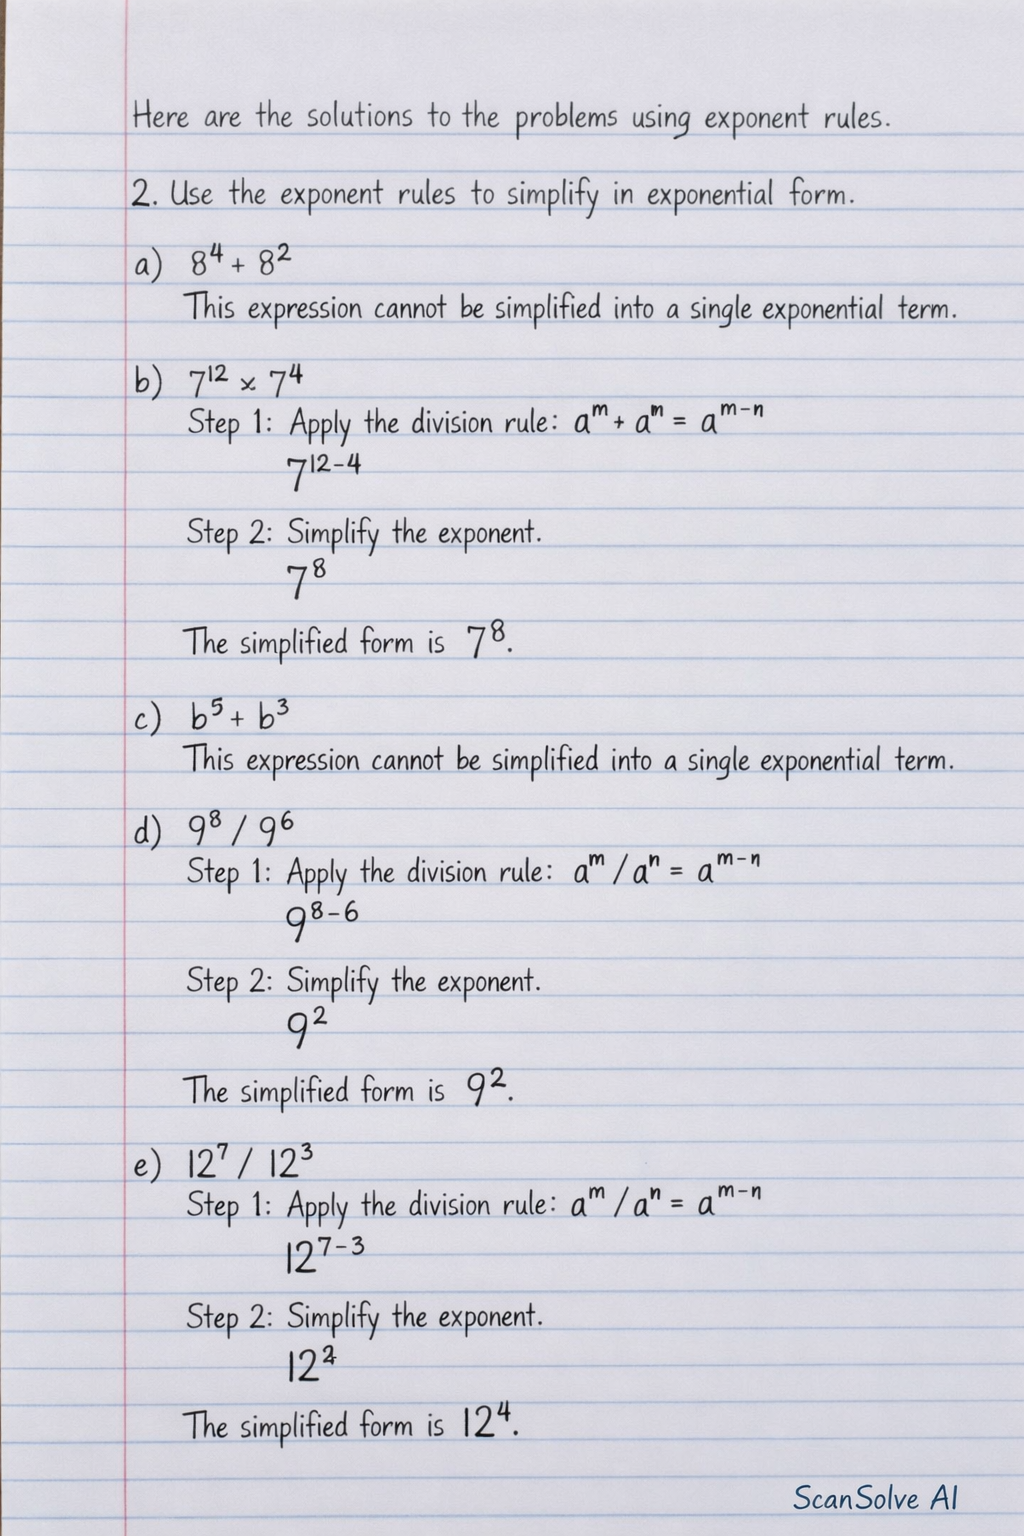 Here are the solutions to the problems using exponent rules.
2. Use the exponent rules to simplify in exponential form.
a) 8⁴ + 8²
This expression cannot be simplified into a single exponential term.
b) 7¹² × 7⁴
Step 1: Apply the division rule: aᵐ + aᵐ = aᵐ⁻ⁿ
7¹²⁻⁴
Step 2: Simplify the exponent.
7⁸
The simplified form is 7⁸.
c) b⁵ + b³
This expression cannot be simplified into a single exponential term.
d) 9⁸ / 9⁶
Step 1: Apply the division rule: aᵐ / aⁿ = aᵐ⁻ⁿ
9⁸⁻⁶
Step 2: Simplify the exponent.
9²
The simplified form is 9².
e) 12⁷ / 12³
Step 1: Apply the division rule: aᵐ / aⁿ = aᵐ⁻ⁿ
12⁷⁻³
Step 2: Simplify the exponent.
The simplified form is 12⁴.
ScanSolve AI